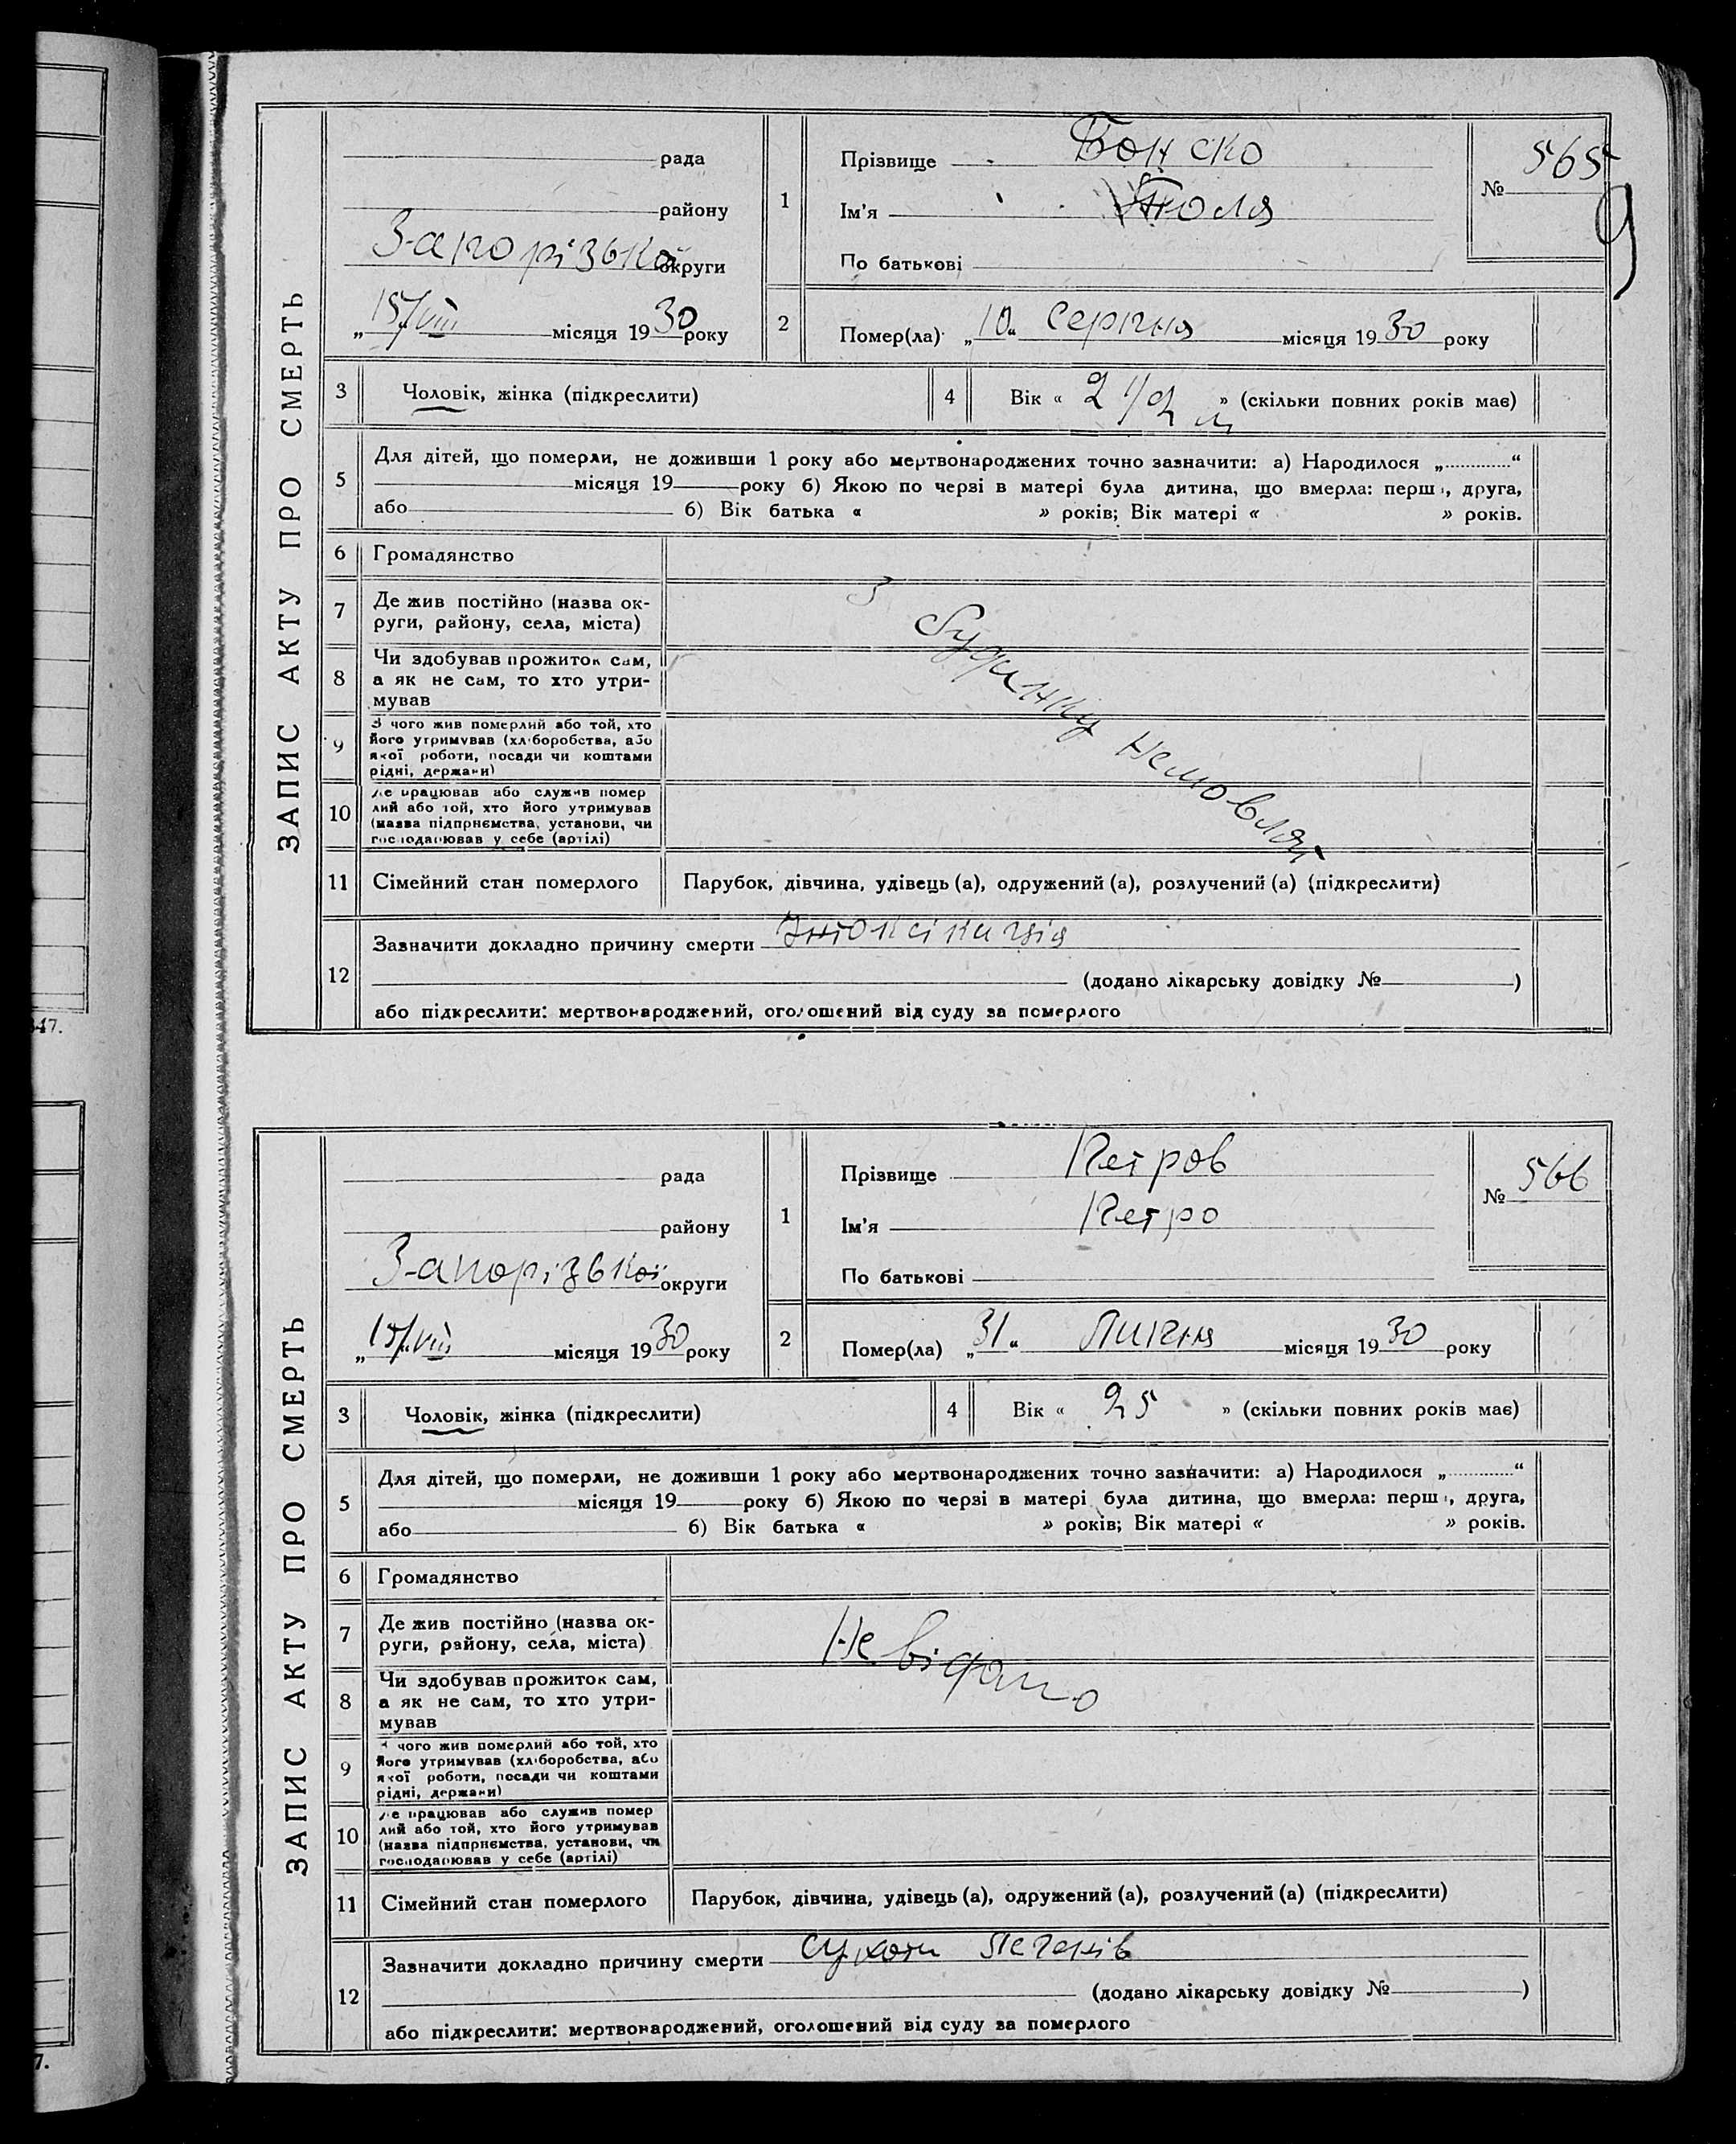 ЗАПИС АКТУ ПРО СМЕРТЬ
рада
району
Запорізької округи
„15/VIII місяця 1930 року
1
Прізвище Бонско
Ім'я Толя
По батькові
№ 565
9
2
Помер(ла) „10“ Серпня місяця 1930 року
3
Чоловік, жінка (підкреслити)
4
Вік « 2 1/2 м » (скільки повних років має)
5
Для дітей, що померли, не доживши 1 року або мертвонароджених точно зазначити: а) Народилося „ “
місяця 19 року б) Якою по черзі в матері була дитина, що вмерла: перша, друга,
або б) Вік батька « » років; Вік матері « » років.
6
Громадянство
7
Де жив постійно (назва ок-
руги, району, села, міста)
8
Чи здобував прожиток сам,
а як не сам, то хто утри-
мував
9
З чого жив померлий або той, хто
його утримував (хліборобства, або
якої роботи, посади чи коштами
рідні, держави)
10
Де працював або служив помер
лий або той, хто його утримував
(назва підприємства, установи, чи
господарював у себе (артілі)
З будинку немовлят
11
Сімейний стан померлого
Парубок, дівчина, удівець (а), одружений (а), розлучений (а) (підкреслити)
12
Зазначити докладно причину смерти Інтоксікація
(додано лікарську довідку № )
або підкреслити: мертвонароджений, оголошений від суду за померлого
ЗАПИС АКТУ ПРО СМЕРТЬ
рада
району
Запорізької округи
„15/VIII місяця 1930 року
1
Прізвище Петров
Ім'я Петро
По батькові
№ 566
2
Помер(ла) „31“ Липня місяця 1930 року
3
Чоловік, жінка (підкреслити)
4
Вік « 25 » (скільки повних років має)
5
Для дітей, що померли, не доживши 1 року або мертвонароджених точно зазначити: а) Народилося „ “
місяця 19 року б) Якою по черзі в матері була дитина, що вмерла: перша, друга,
або б) Вік батька « » років; Вік матері « » років.
6
Громадянство
7
Де жив постійно (назва ок-
руги, району, села, міста)
8
Чи здобував прожиток сам,
а як не сам, то хто утри-
мував
9
З чого жив померлий або той, хто
його утримував (хліборобства, або
якої роботи, посади чи коштами
рідні, держави)
10
Де працював або служив помер
лий або той, хто його утримував
(назва підприємства, установи, чи
господарював у себе (артілі)
Не відомо
11
Сімейний стан померлого
Парубок, дівчина, удівець (а), одружений (а), розлучений (а) (підкреслити)
12
Зазначити докладно причину смерти сухоти легенів
(додано лікарську довідку № )
або підкреслити: мертвонароджений, оголошений від суду за померлого